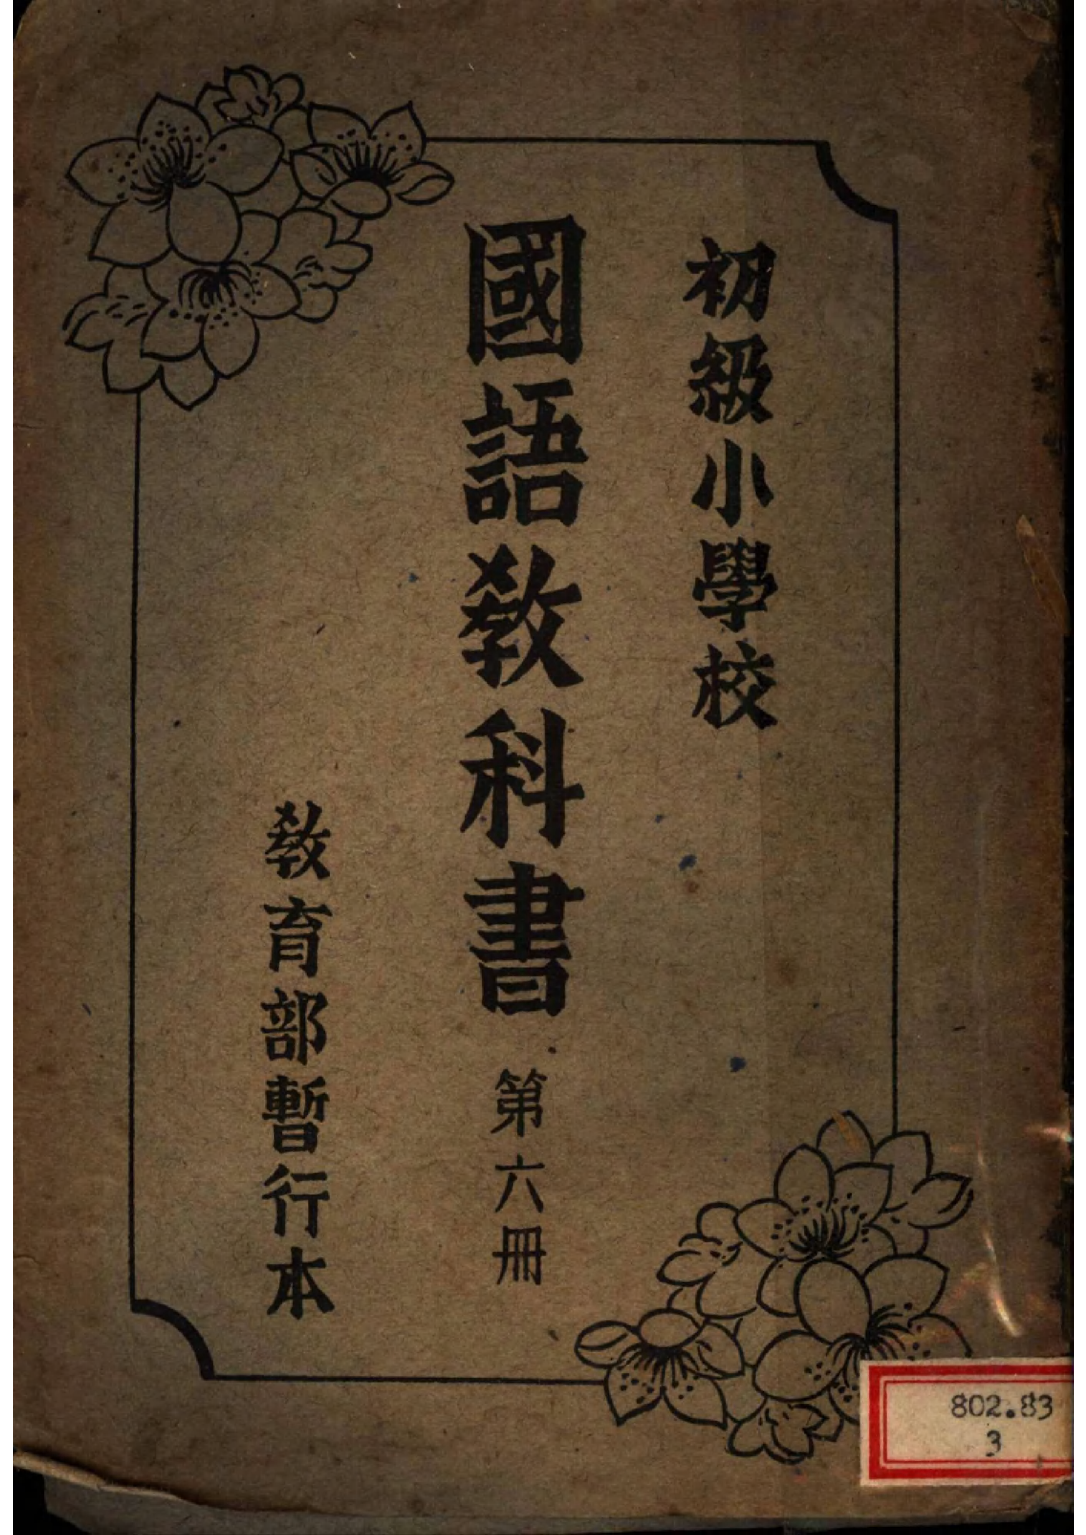 初級小學校
國語教科書 第六冊
教育部暫行本
802.83
3